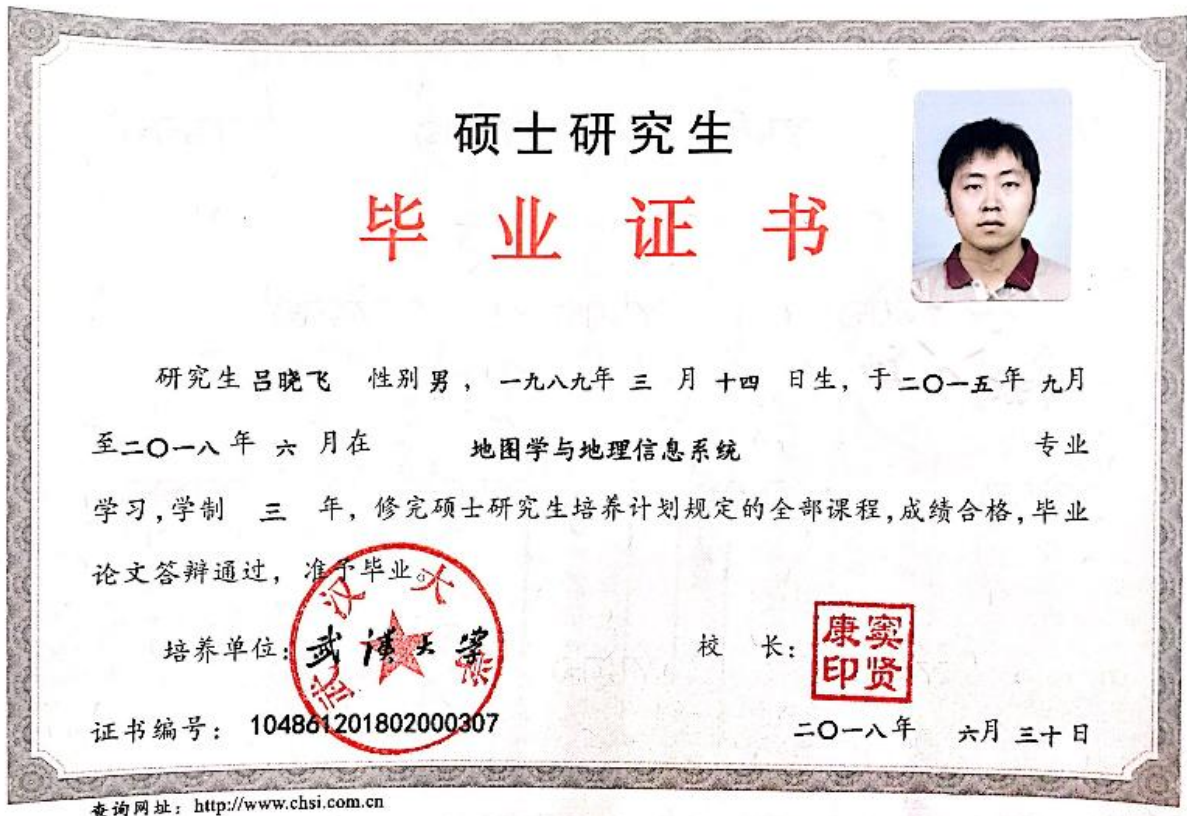 硕士研究生
毕业证书
研究生 吕晓飞 性别 男，一九八九年 三 月 十四 日生，于二〇一五年 九月
至二〇一八 年 六 月在 地图学与地理信息系统 专业
学习，学制 三 年，修完硕士研究生培养计划规定的全部课程，成绩合格，毕业
论文答辩通过，准予毕业。
武汉大学
培养单位：武汉大学 校 长：
窦贤康印
证书编号：104861201802000307 二〇一八年 六月 三十 日
查询网址：http://www.chsi.com.cn